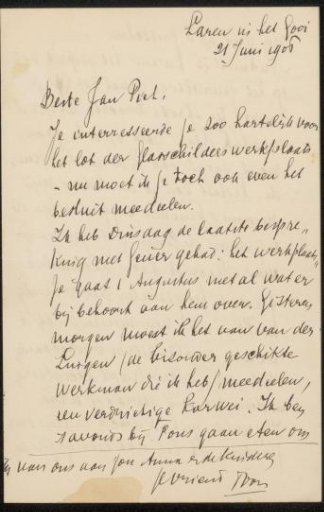 Laren in het Gooi
21 Juni 1905
Beste Jan Piet.
Je interresseerde je zoo hartelijk voor
het lot der glasschilderswerkplaats
- nu moet ik je toch ook even het
besluit meedeelen.
Ik heb Dinsdag de laatste bespre„
king met Geuer gehad: het werkplaats„
je gaat 1 Augustus met al wat er
bij behoort aan hem over. Gisteren
morgen moest ik het van van der
(de bizonder geschikte
werkman die ik heb) meedeelen,
een verdrietige karwei. Ik ben
s'avonds bij Pons gaan eten om
van ons aan jou Anna en de kinderen
je vriend